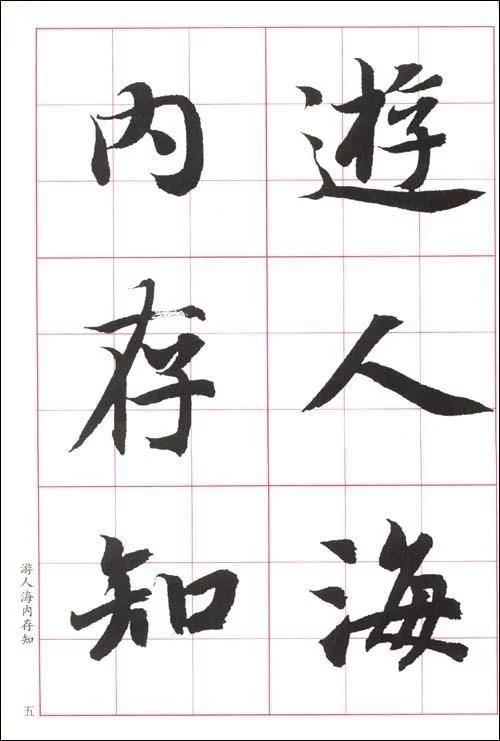 遊人海
内存知
游人海内存知
五